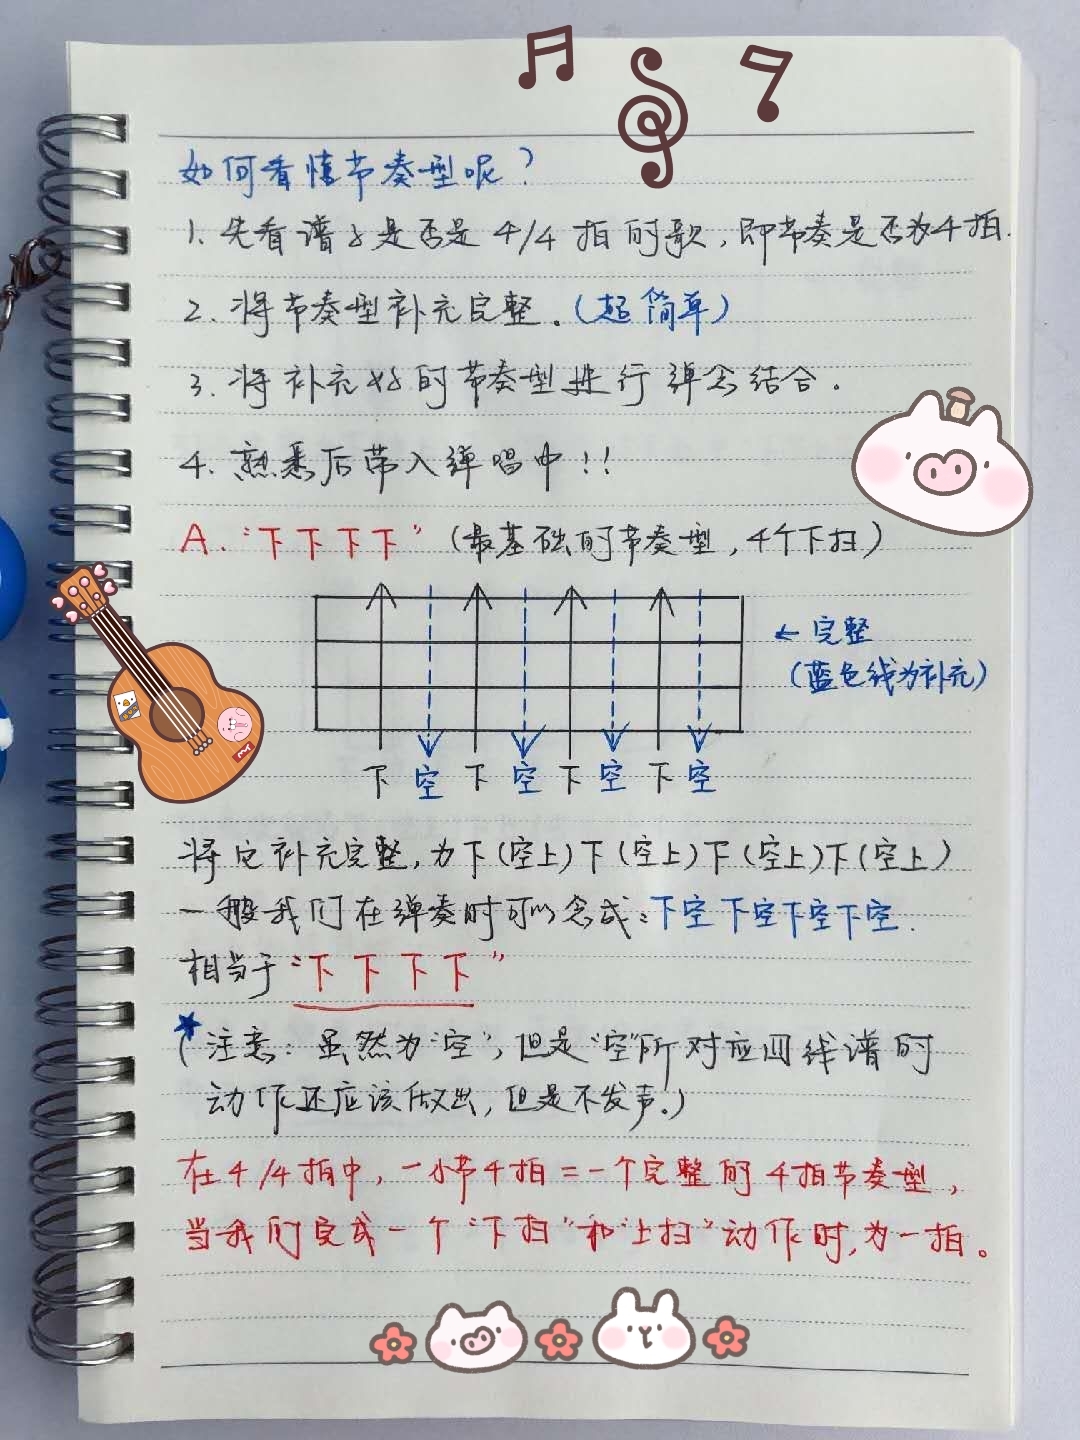 如何看懂节奏型呢?
1. 先看谱子是否是 4/4 拍的歌,即节奏是否为4拍.
2. 将节奏型补充完整.(超简单)
3. 将补充好的节奏型进行弹念结合.
4. 熟悉后带入弹唱中!!
A. “下下下下”(最基础的节奏型,4个下扫)
← 完整
(蓝色线为补充)
下 空 下 空 下 空 下 空
将它补充完整,为下(空上)下(空上)下(空上)下(空上)
一般我们在弹奏时可以念成:下空下空下空下空.
相当于“下下下下”
★(注意:虽然为“空”,但是“空”所对应四线谱的
动作还应该做出,但是不发声.)
在4/4拍中,一小节4拍=一个完整的4拍节奏型,
当我们完成一个“下扫”和“上扫”动作时,为一拍。